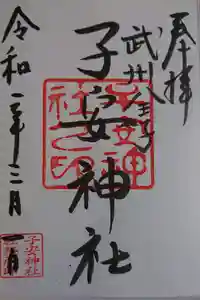 奉拝
武州八王子
子安神社
子安神
社之印
令和
子安神社